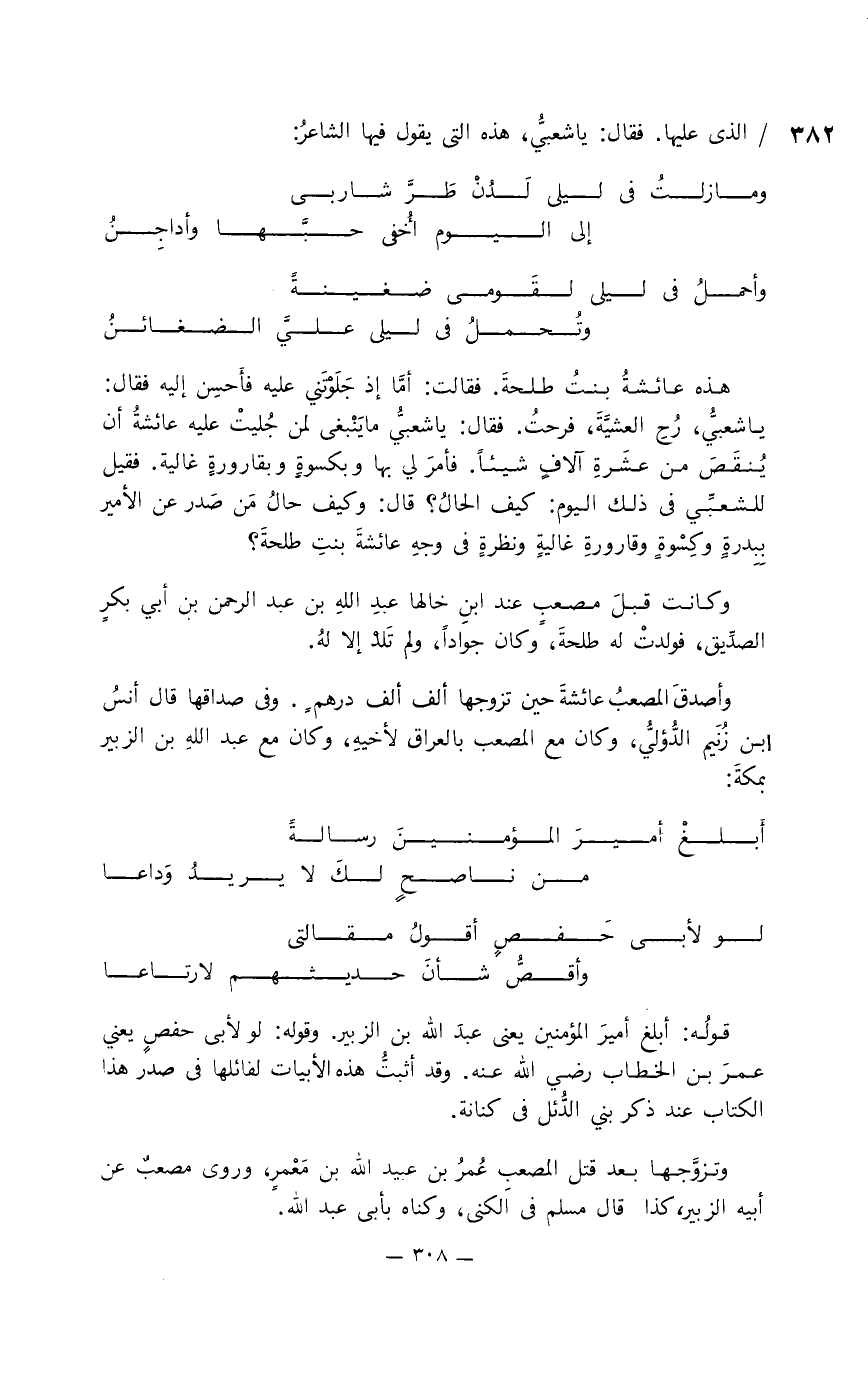 ٣٨٢ / الذى عليها. فقال: ياشعبيُّ، هذه التى يقول فيها الشاعرُ:
ومازلتُ فى ليلى لَدُنْ طَرَّ شاربى
إلى اليوم أُخفى حبَّها وأداجِنُ
وأحملُ فى ليلى لقَومى ضغينةً
وتُحملُ فى ليلى عليَّ الضغائنُ
هذه عائشةُ بنتُ طلحةَ. فقالت: أمَّا إذ جَلَوْتَني عليه فأَحسِن إليه فقال:
ياشعبيُّ، رُح العشيَّةَ، فرحتُ. فقال: ياشعبيُّ ماينْبغى لمن جُليتْ عليه عائشةُ أن
يُنقَصَ من عشَرةِ آلافٍ شيئاً. فأمرَ لي بها وبكسوةٍ وبقارورةٍ غالية. فقيل
للشعبِّي فى ذلك اليوم: كيف الحالُ؟ قال: وكيف حالُ مَن صَدر عن الأمير
بِبدرةٍ وكِسْوةٍ وقارورةِ غاليةٍ ونظرةٍ فى وجهِ عائشةَ بنتِ طلحةَ؟
وكانت قبلَ مصعبٍ عند ابنِ خالها عبدِ اللهِ بن عبد الرحمن بنِ أبي بكرٍ
الصدِّيق، فولدتْ له طلحةَ، وكان جواداً، ولم تَلدْ إلا لهُ.
وأصدقَ المصعبُ عائشةَ حين تزوجها ألف ألف درهمٍ. وفى صداقها قال أنسُ
ابن زُنَيم الدُّؤليُّ، وكان مع المصعب بالعراق لأخيهِ، وكان مع عبد اللهِ بن الزبير
بمكةَ:
أَبلغْ أميرَ المؤمنينَ رسالةً
من ناصحٍ لكَ لا يريدُ وَداعا
لو لأبى حَفصٍ أقولُ مقالتى
وأقصُّ شأنَ حديثهم لارتاعا
قولُه: أبلغ أميرَ المؤمنين يعنى عبدَ الله بن الزبير. وقوله: لو لأبى حفصٍ يعني
عمرَ بن الخطاب رضي الله عنه. وقد أثبتُّ هذه الأبيات لقائلها فى صدر هذا
الكتاب عند ذكر بني الدُّئل فى كنانة.
وتزوَّجها بعد قتل المصعبِ عُمرُ بن عبيد الله بن مَعْمرٍ، وروى مصعبٌ عن
أبيه الزبير،كذا قال مسلم فى الكنى، وكناه بأبى عبد الله.
— ٣٠٨ —